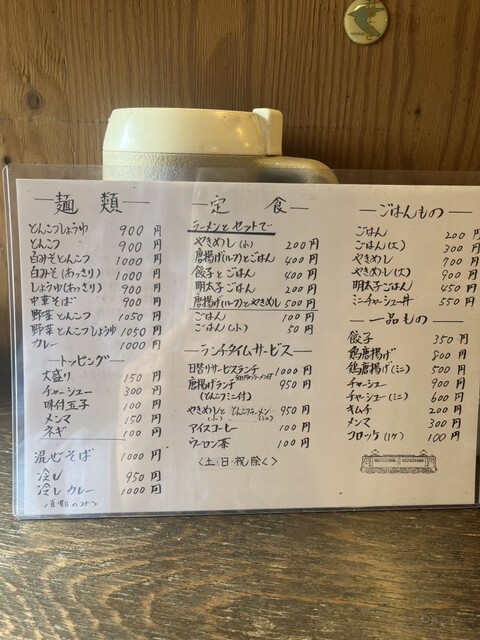 麺類
とんこつしょうゆ 900円
とんこつ 900円
白みそとんこつ 1000円
白みそ(あっさり) 1000円
しょうゆ(あっさり) 900円
中華そば 900円
野菜とんこつ 1050円
野菜とんこつしょうゆ 1050円
カレー 1000円
トッピング
大盛り 150円
チャーシュー 300円
味付玉子 100円
メンマ 150円
ネギ 100円
混ぜそば 1000円
冷し 950円
冷しカレー 1000円
定食
ラーメンとセットで
やきめし(小) 200円
唐揚げ(ルフ)とごはん 400円
餃子とごはん 400円
明太子ごはん 200円
唐揚げ(ルフ)とやきめし 500円
ごはん 100円
ごはん(小) 50円
ランチタイムサービス
日替りサービスランチ 1000円
唐揚げランチ 950円
(とんこつミニ付)
やきめし(小)ととんこつラーメン(ミニ) 950円
アイスコーヒー 100円
ウーロン茶 100円
〈土・日・祝除く〉
ごはんもの
ごはん 200円
ごはん(大) 300円
やきめし 700円
やきめし(大) 900円
明太子ごはん 450円
ミニチャーシュー丼 550円
一品もの
餃子 350円
鶏唐揚げ 800円
鶏唐揚げ(ミニ) 500円
チャーシュー 900円
チャーシュー(ミニ) 600円
キムチ 200円
メンマ 300円
コロッケ(1ケ) 100円